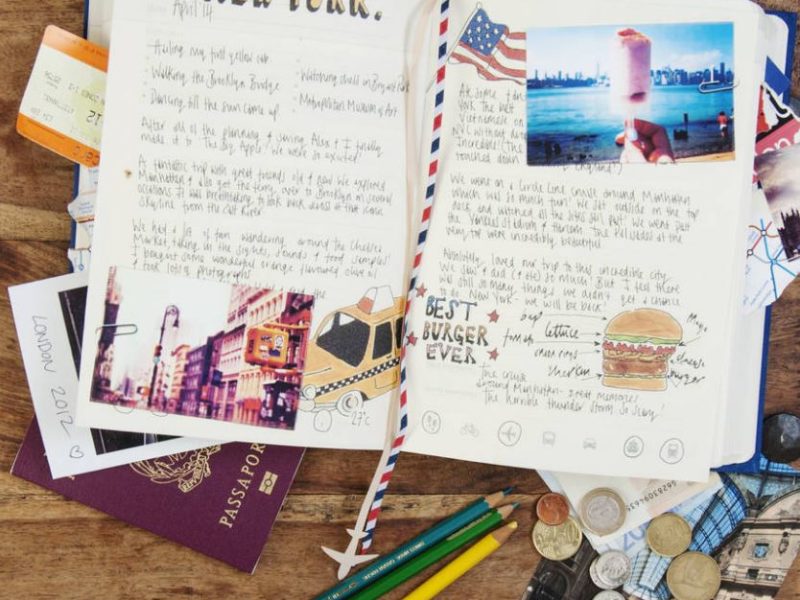 New York.
April 14
Hailing my first yellow cab
Walking the Brooklyn Bridge
Dancing till the sun came up
Watching chess in Bryant Park
Metropolitan Museum of Art
After all of the planning & saving Alex & I finally
made it to 'The Big Apple'! We were so excited!
A fantastic trip with great friends old & new. We explored
Manhattan & also got the ferry over to Brooklyn on several
occasions. It was breathtaking to look back across at that iconic
skyline from the East River
We had a lot of fun wandering around the Chelsea
Market, taking in the sights, sounds & food samples!
I bought some wonderful orange flavoured olive oil
took lots of photographs
27°c
At some
York. The best
Vietnamese
NYC without
Incredible! (The
touched down
We went on a Circle Line cruise around Manhattan
which was so much fun! We sat outside on the top
deck and watched all the sites sail past. We went past
the Yankees stadium & Harlem. The Palisades at the
very top were incredibly beautiful
Absolutely loved our trip to this incredible city.
We saw & did (& ate) so much! But I feel there
were still so many things we didn't get a chance
to do. New York - we will be back!
BEST
BURGER
EVER
lettuce
onion rings
Mayo
cheese
burger
The cruise
around Manhattan - great memories
The horrible thunder storm. So scary!
LONDON 2012
PASSAPORTO